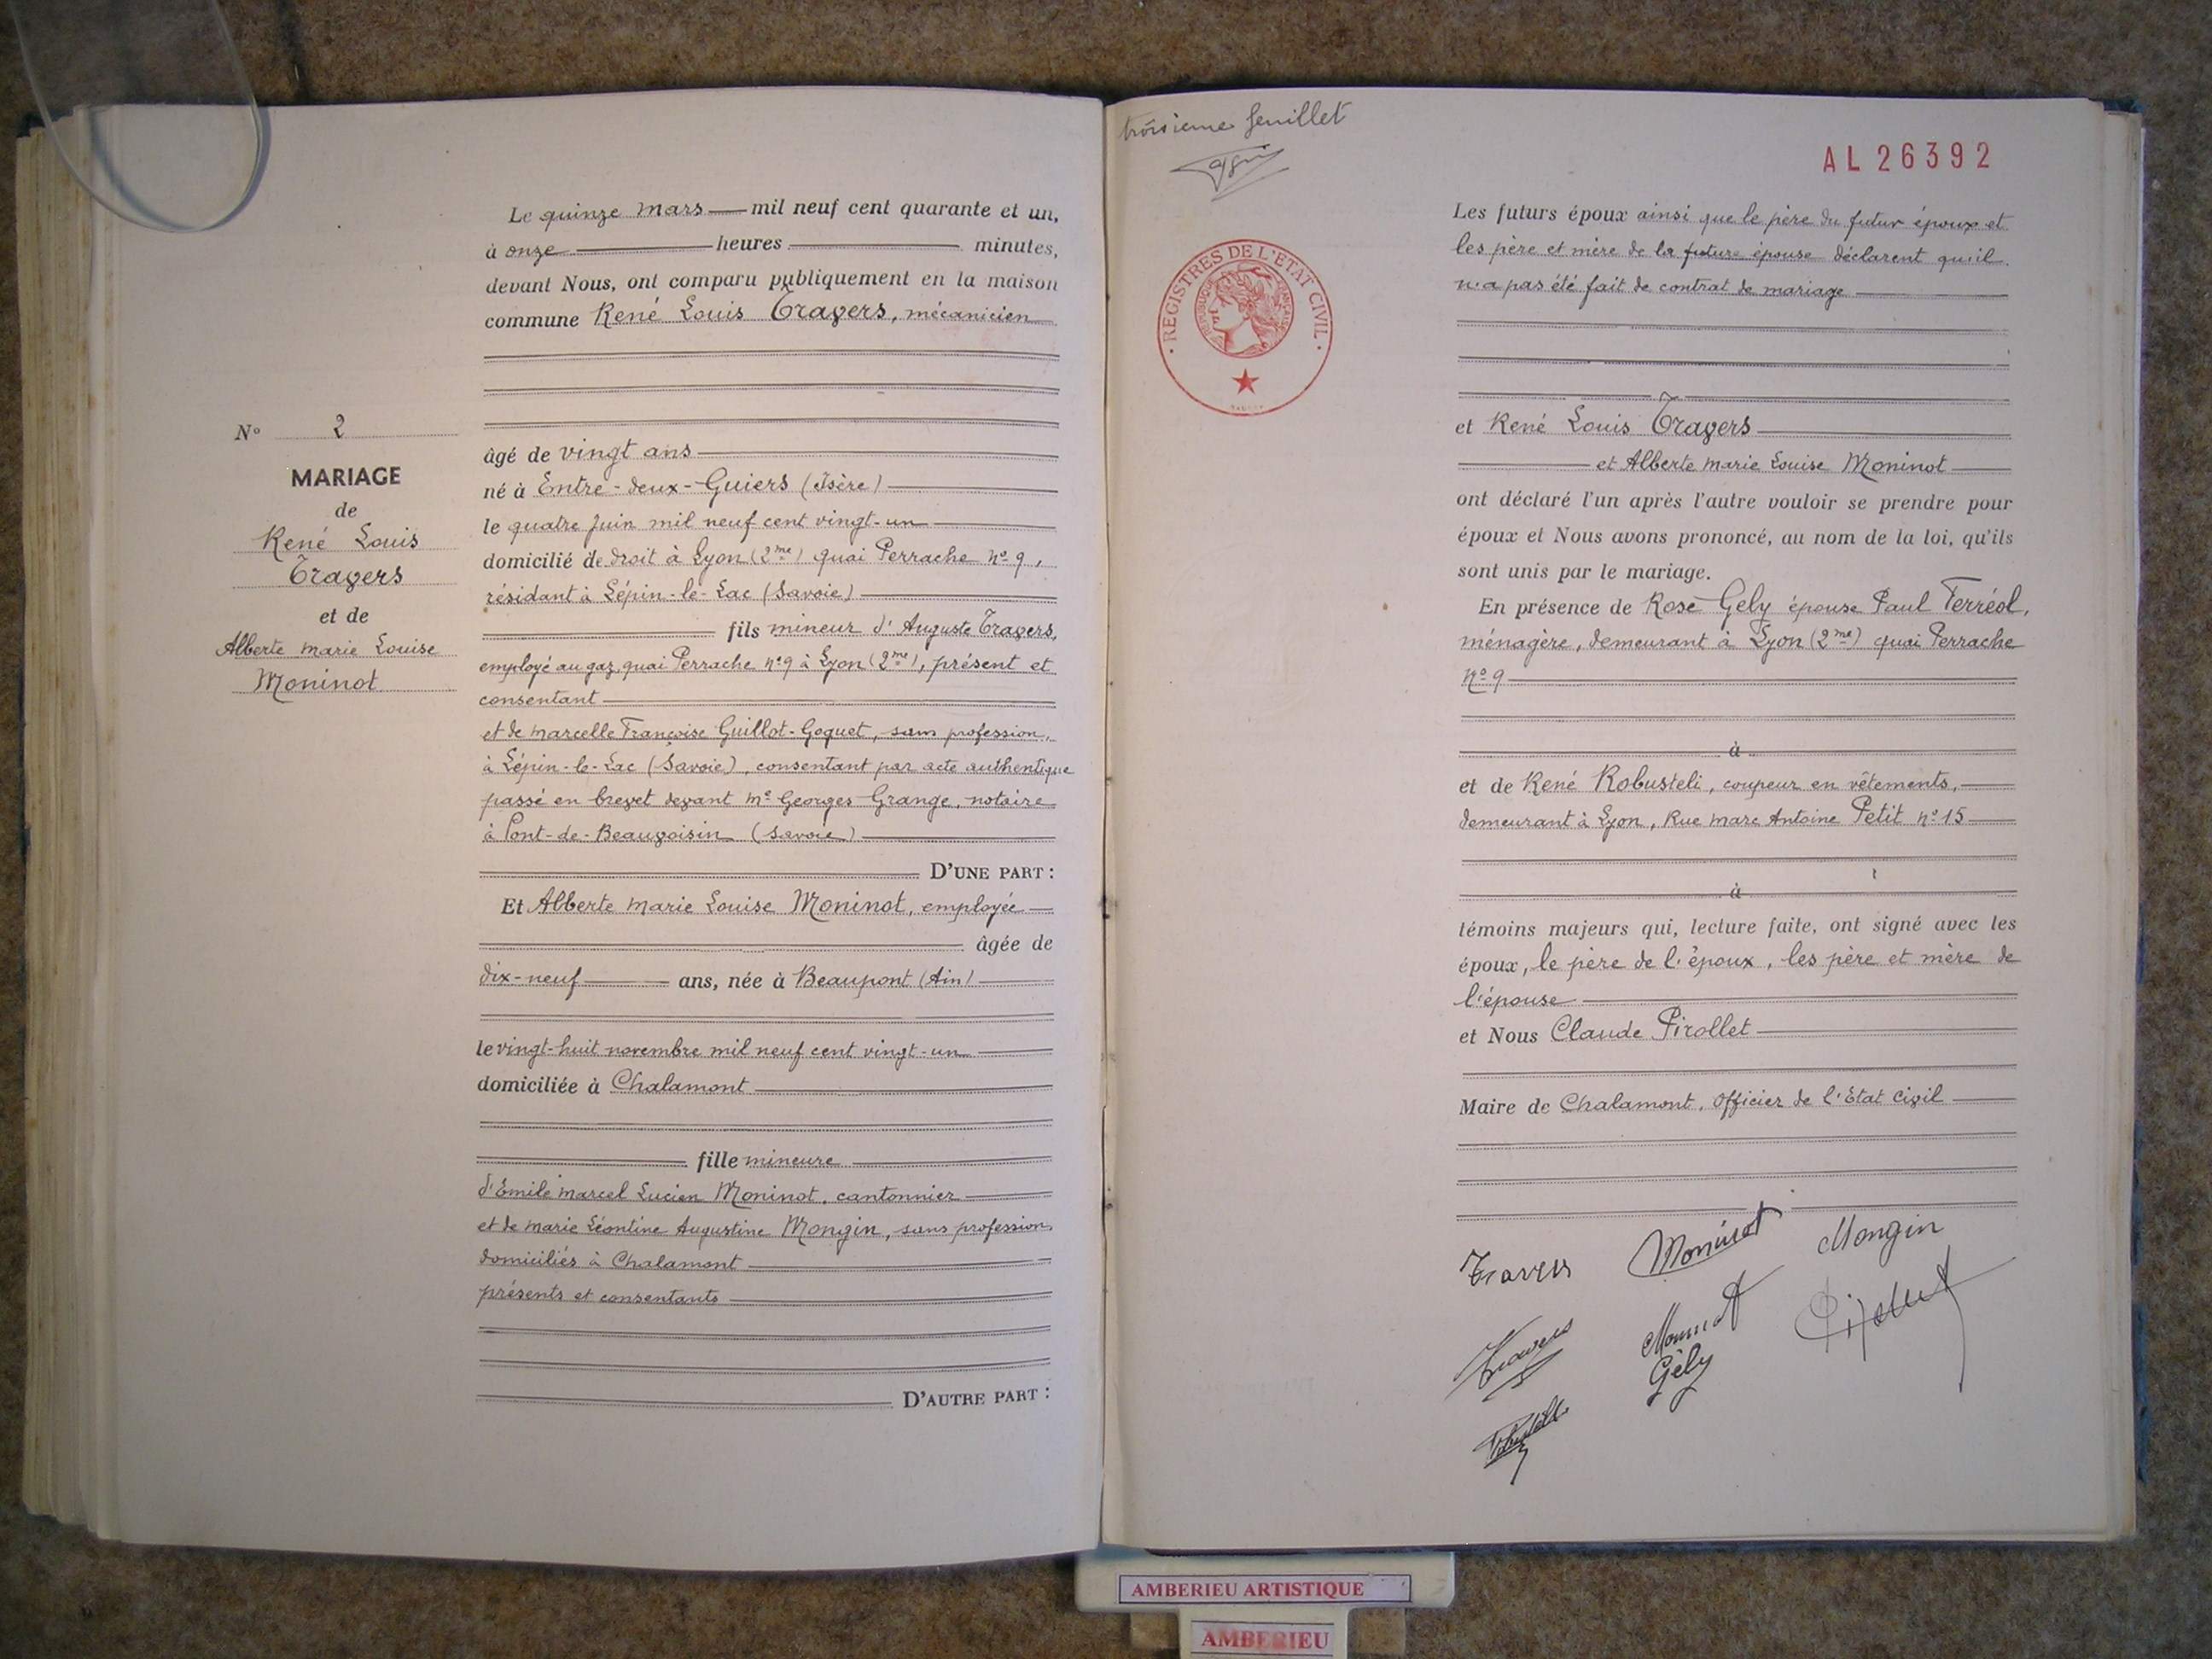 Le quinze mars mil neuf cent quarante et un,
à onze heures minutes,
devant Nous, ont comparu publiquement en la maison
commune René Louis Travers, mécanicien
N° 2
MARIAGE
de
René Louis
Travers
et de
Alberte marie Louise
Moninot
âgé de vingt ans
né à Entre-deux-Guiers (Isère)
le quatre juin mil neuf cent vingt-un
domicilié de droit à Lyon (2me) quai Perrache n° 9,
résidant à Lépin-le-Lac (Savoie)
fils mineur d'Auguste Travers,
employé au gaz, quai Perrache n° 9 à Lyon (2me), présent et
consentant
et de marcelle Françoise Guillot-Goguet, sans profession,
à Lépin-le-Lac (Savoie), consentant par acte authentique
passé en brevet devant me Georges Grange, notaire
à Pont-de-Beauvoisin (Savoie)
D'UNE PART :
Et Alberte marie Louise Moninot, employée
âgée de
dix-neuf ans, née à Beaupont (Ain)
le vingt-huit novembre mil neuf cent vingt-un
domiciliée à Chalamont
fille mineure
d'Emile marcel Lucien Moninot, cantonnier
et de marie Léontine Augustine Mongin, sans profession,
domiciliés à Chalamont
présents et consentants
D'AUTRE PART :
troisieme feuillet
AL 26392
REGISTRES DE L'ETAT CIVIL
Les futurs époux ainsi que le père du futur époux et
les père et mère de la future épouse déclarent qu'il
n'a pas été fait de contrat de mariage
et René Louis Travers
et Alberte marie Louise Moninot
ont déclaré l'un après l'autre vouloir se prendre pour
époux et Nous avons prononcé, au nom de la loi, qu'ils
sont unis par le mariage.
En présence de Rose Gely épouse Paul Ferréol,
ménagère, demeurant à Lyon (2me) quai Perrache
n° 9
à
et de René Robusteli, coupeur en vêtements,
demeurant à Lyon, Rue marc Antoine Petit n° 15
à
témoins majeurs qui, lecture faite, ont signé avec les
époux, le père de l'époux, les père et mère de
l'épouse
et Nous Claude Pirollet
Maire de Chalamont, Officier de l'Etat Civil
Travers Moninot Mongin
Travers Moninot Pirollet
Gély
AMBERIEU ARTISTIQUE
AMBERIEU